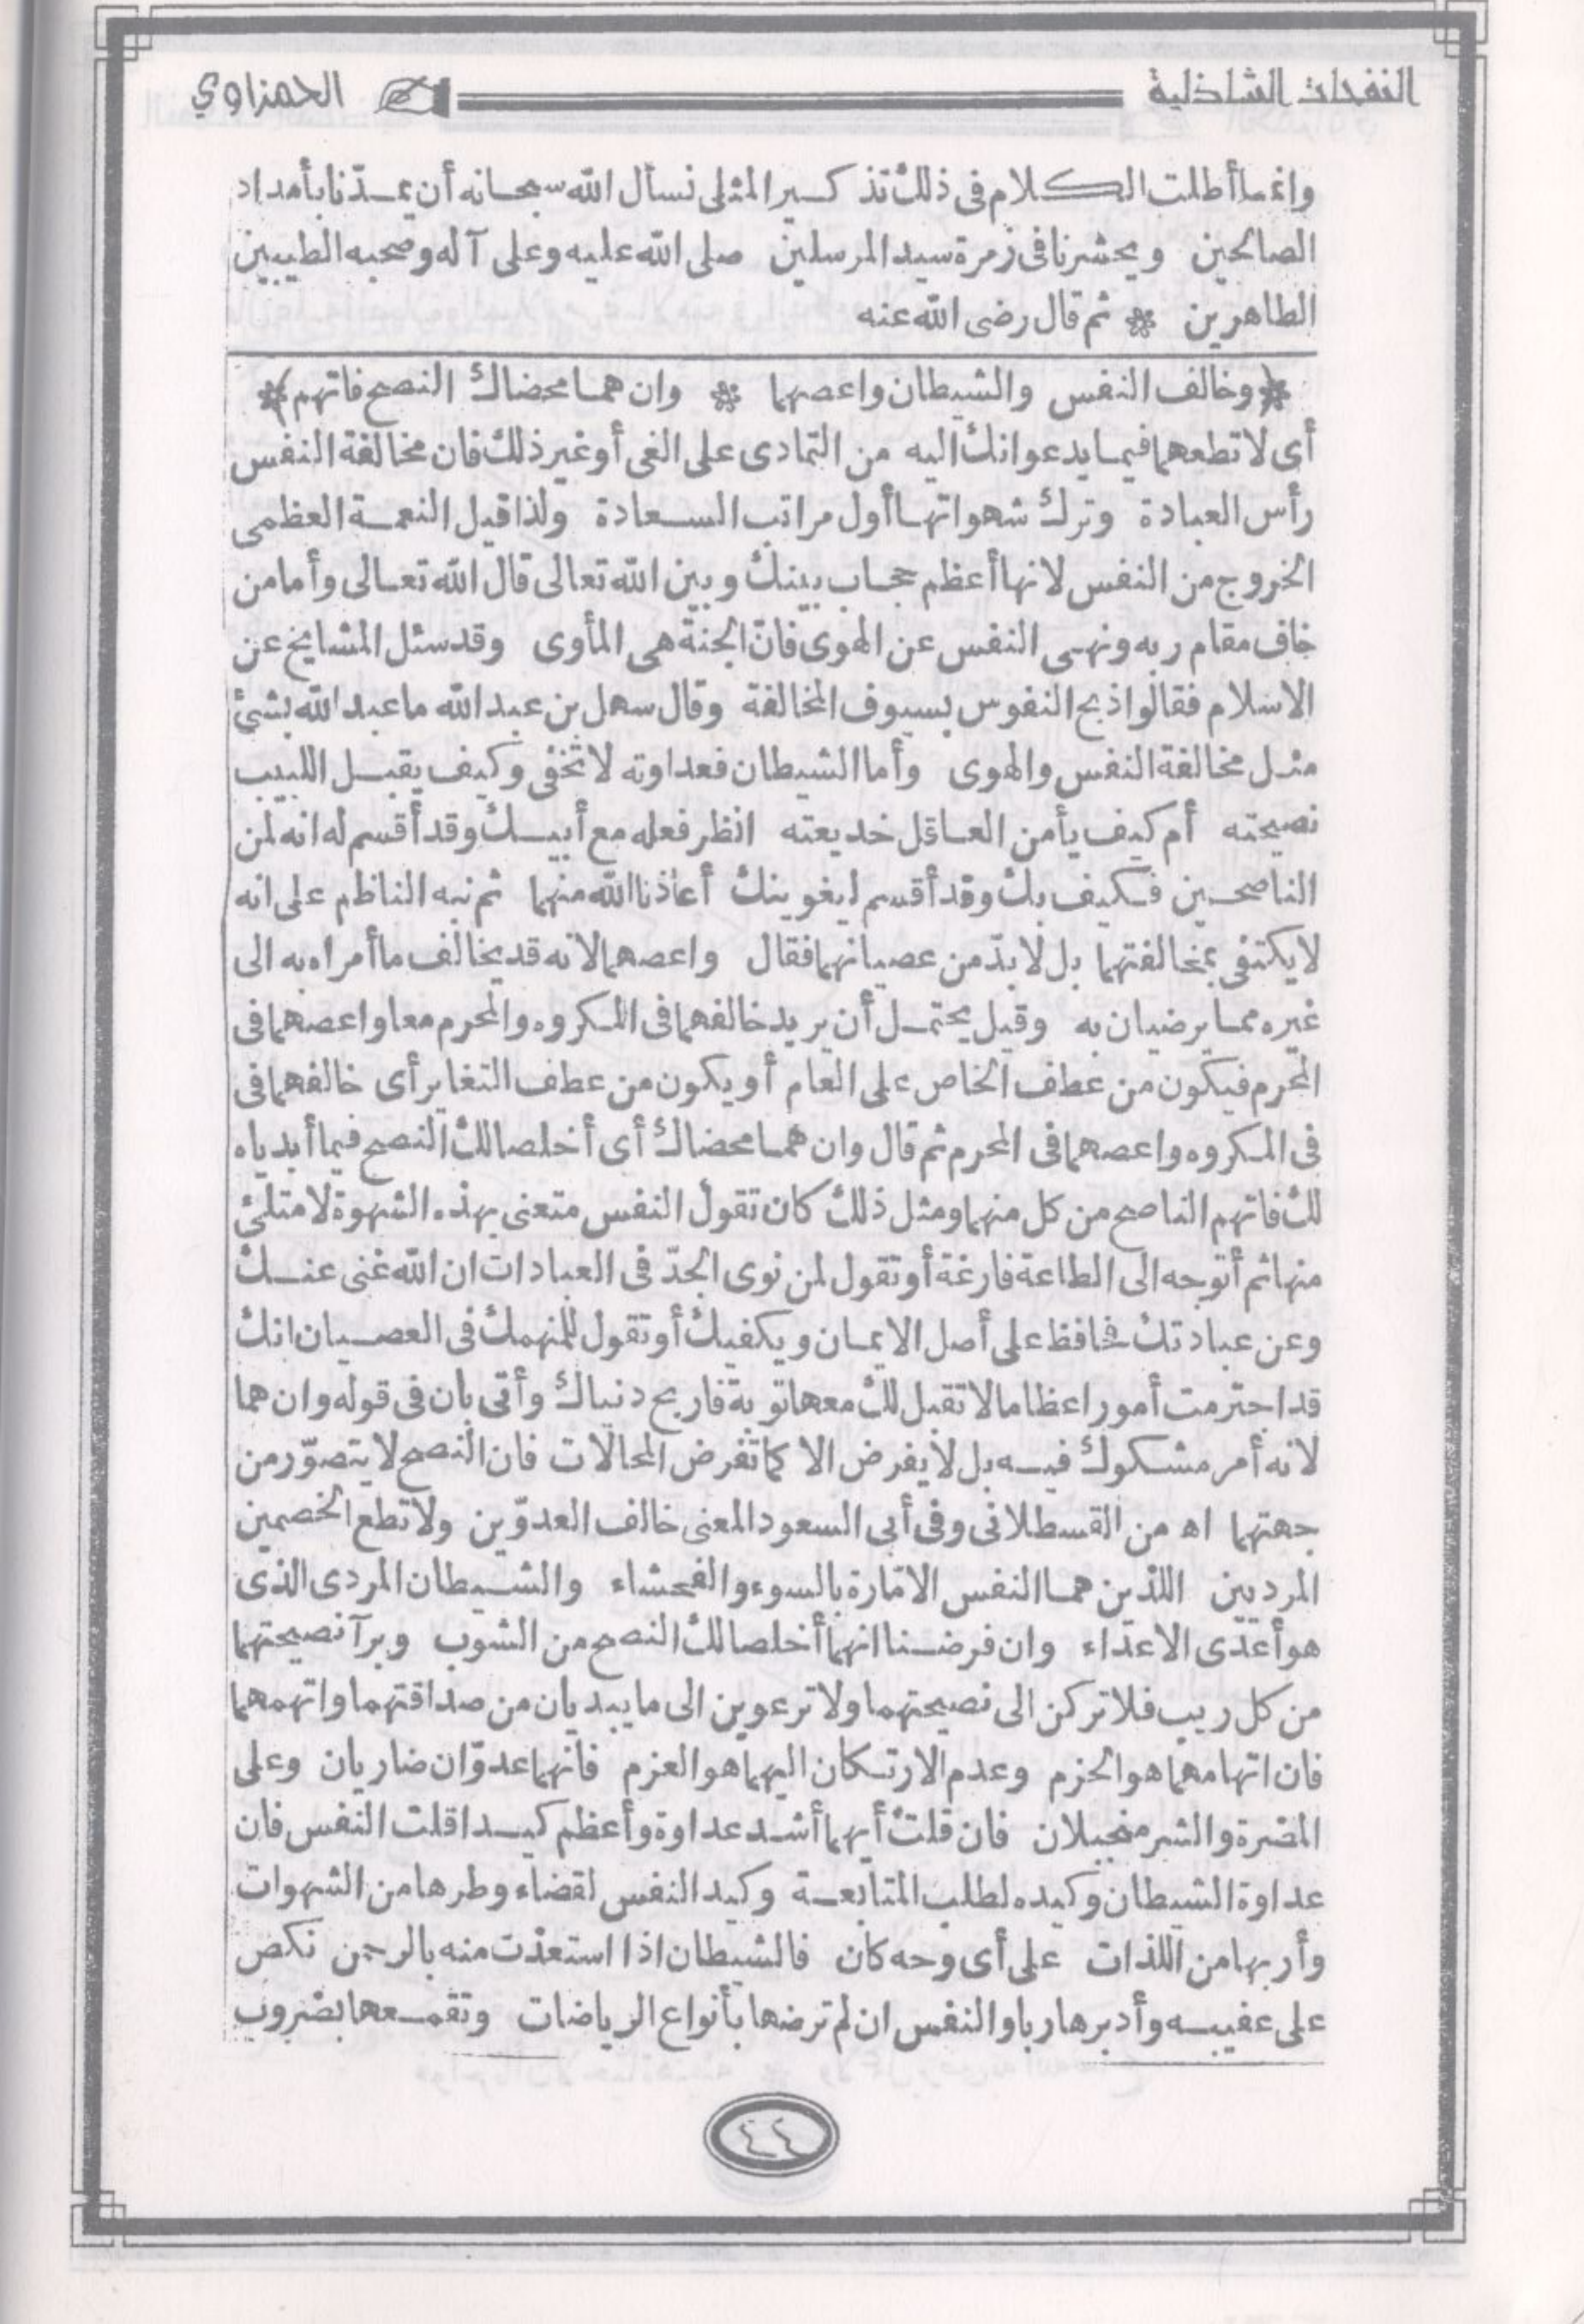 النفحات الشاذلية
الحمزاوي
وانما أطلت الكلام فى ذلك تذكير المثلى نسأل الله سبحانه أن يمدّنا بأمداد
الصالحين ويحشرنا فى زمرة سيد المرسلين صلى الله عليه وعلى آله وصحبه الطيبين
الطاهرين * ثم قال رضى الله عنه
* وخالف النفس والشيطان واعصهما * وان هما محضاك النصح فاتهم *
أى لا تطعهما فيما يدعوانك اليه من التمادى على الغى أو غير ذلك فان مخالفة النفس
رأس العبادة وترك شهواتها أول مراتب السعادة ولذا قيل النعمة العظمى
الخروج من النفس لانها أعظم حجاب بينك وبين الله تعالى قال الله تعالى وأما من
خاف مقام ربه ونهى النفس عن الهوى فانّ الجنة هى المأوى وقد سئل المشايخ عن
الاسلام فقالوا ذبح النفوس بسيوف المخالفة وقال سهل بن عبد الله ما عبد الله بشئ
مثل مخالفة النفس والهوى وأما الشيطان فعداوته لا تخفى وكيف يقبل اللبيب
نصيحته أم كيف يأمن العاقل خديعته انظر فعله مع أبيك وقد أقسم له انه لمن
الناصحين فكيف بك وقد أقسم ليغوينك أعاذنا الله منهما ثم نبه الناظم على انه
لا يكتفى بمخالفتهما بل لا بدّ من عصيانهما فقال واعصهما لانه قد يخالف ما أمراه به الى
غيره مما يرضيان به وقيل يحتمل أن يريد خالفهما فى المكروه والمحرم معا واعصهما فى
المحرم فيكون من عطف الخاص على العام أو يكون من عطف التغاير أى خالفهما فى
فى المكروه واعصهما فى المحرم ثم قال وان هما محضاك أى أخلصا لك النصح فيما أبدياه
لك فاتهم الناصح من كل منهما ومثل ذلك كان تقول النفس متعنى بهذه الشهوة لامتلئ
منها ثم أتوجه الى الطاعة فارغة أو تقول لمن نوى الجدّ فى العبادات ان الله غنى عنك
وعن عبادتك فحافظ على أصل الايمان ويكفيك أو تقول للمنهمك فى العصيان انك
قد اجترمت أمورا عظاما لا تقبل لك معها توبة فاربح دنياك وأتى بان فى قوله وان هما
لانه أمر مشكوك فيه بل لا يفرض الا كما تفرض المحالات فان النصح لا يتصوّر من
جهتهما اه من القسطلانى وفى أبى السعود المعنى خالف العدوّين ولا تطع الخصمين
المرديين اللذين هما النفس الامّارة بالسوء والفحشاء والشيطان المردى الذى
هو أعدّى الاعداء وان فرضنا انهما أخلصا لك النصح من الشوب وبرآ نصيحتهما
من كل ريب فلا تركن الى نصيحتهما ولا ترعوين الى ما يبديان من صداقتهما واتهمهما
فان اتهامهما هو الحزم وعدم الارتكان اليهما هو العزم فانهما عدوّان ضاريان وعلى
المضرة والشر مجبلان فان قلت أيهما أشد عداوة وأعظم كيدا قلت النفس فان
عداوة الشيطان وكيده لطلب المتابعة وكيد النفس لقضاء وطرها من الشهوات
وأربها من اللذات على أى وجه كان فالشيطان اذا استعذت منه بالرحمن نكص
على عقبيه وأدبر هاربا والنفس ان لم ترضها بأنواع الرياضات وتقمعها بضروب
٤٤